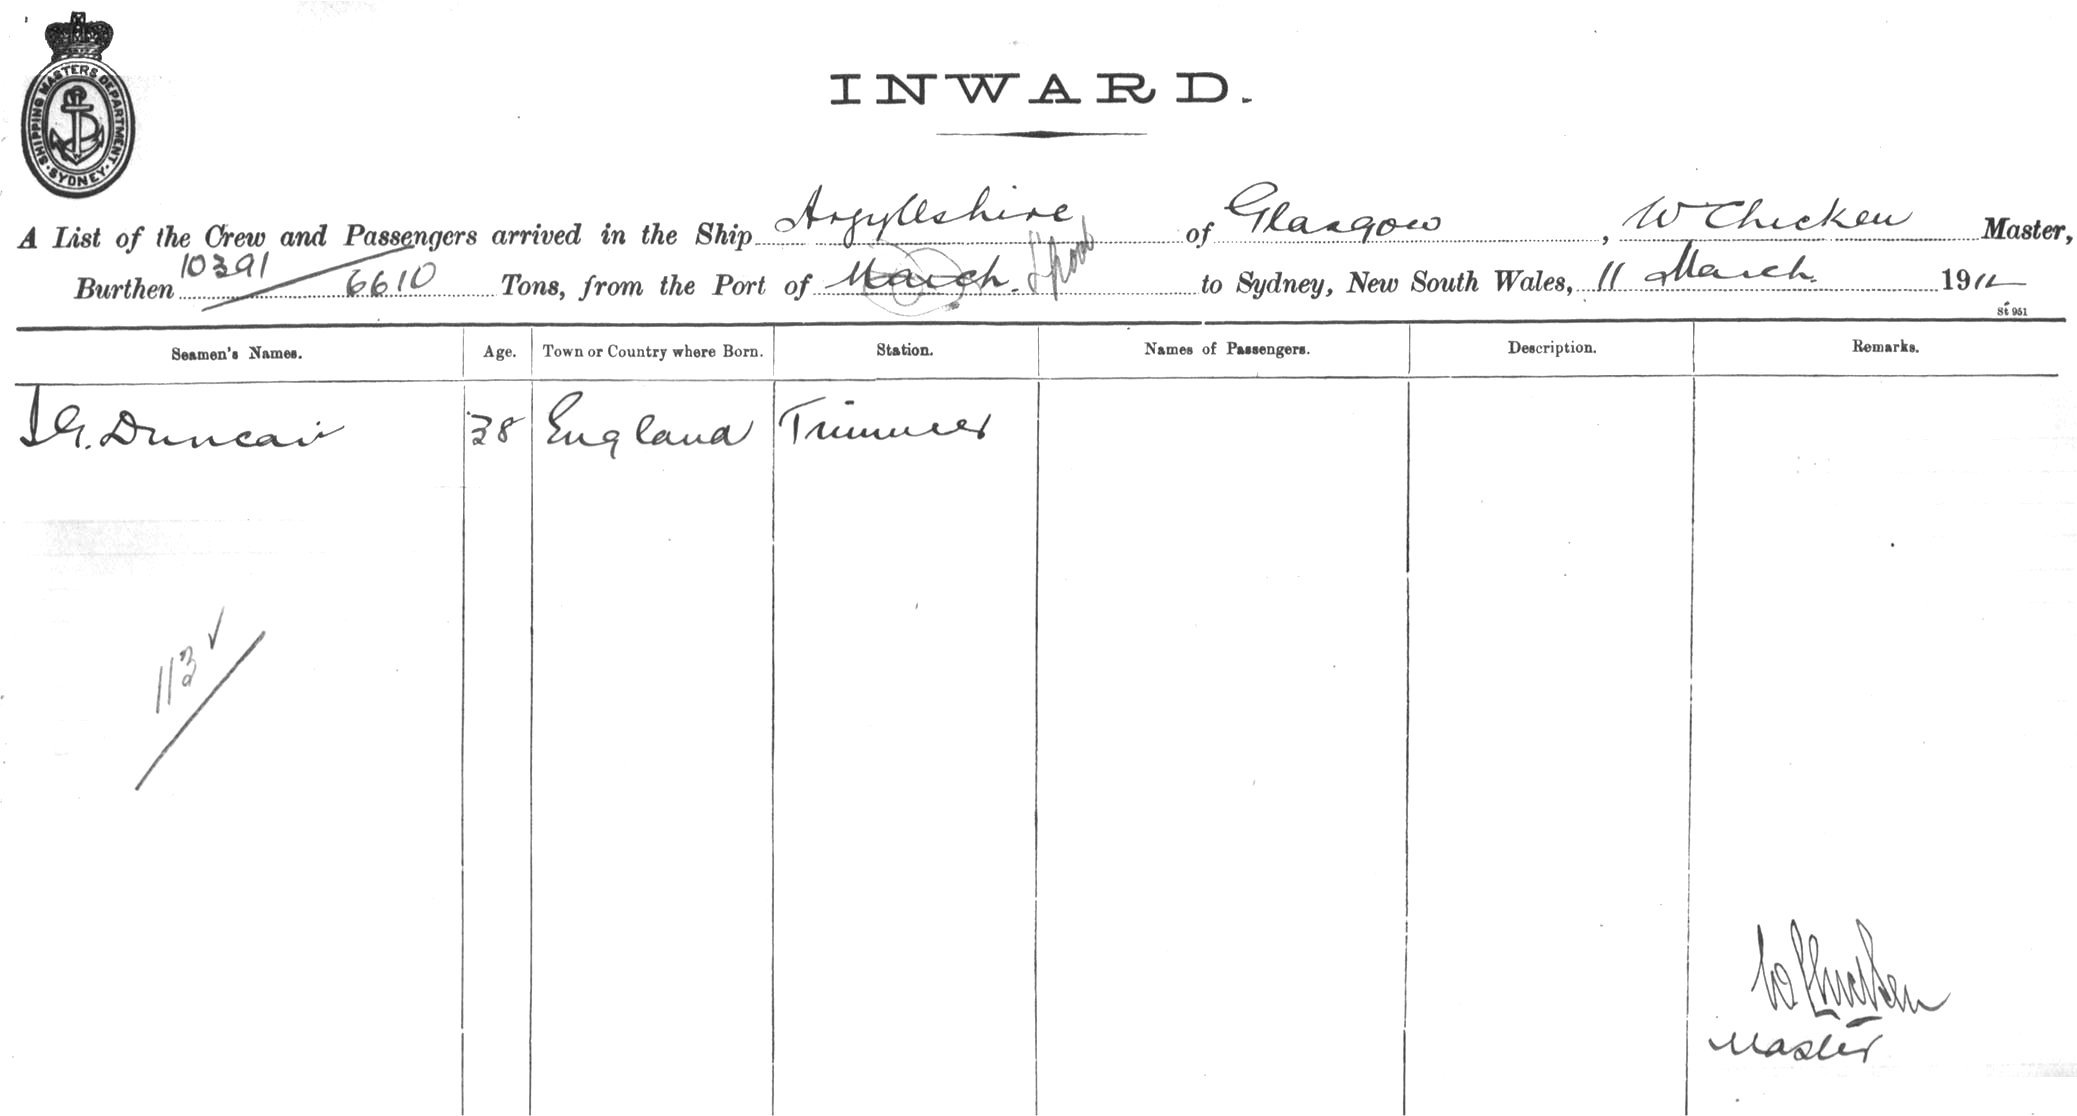 SHIPPING MASTERS DEPARTMENT. SYDNEY.
INWARD.
A List of the Crew and Passengers arrived in the Ship Argyllshire of Glasgow, W Chicken Master,
Burthen 10391 / 6610 Tons, from the Port of March L'pool to Sydney, New South Wales, 11 March 1912
St 951
Seamen's Names. Age. Town or Country where Born. Station. Names of Passengers. Description. Remarks.
J G. Duncan 38 England Trimmer
113 ✓
W Chicken
Master